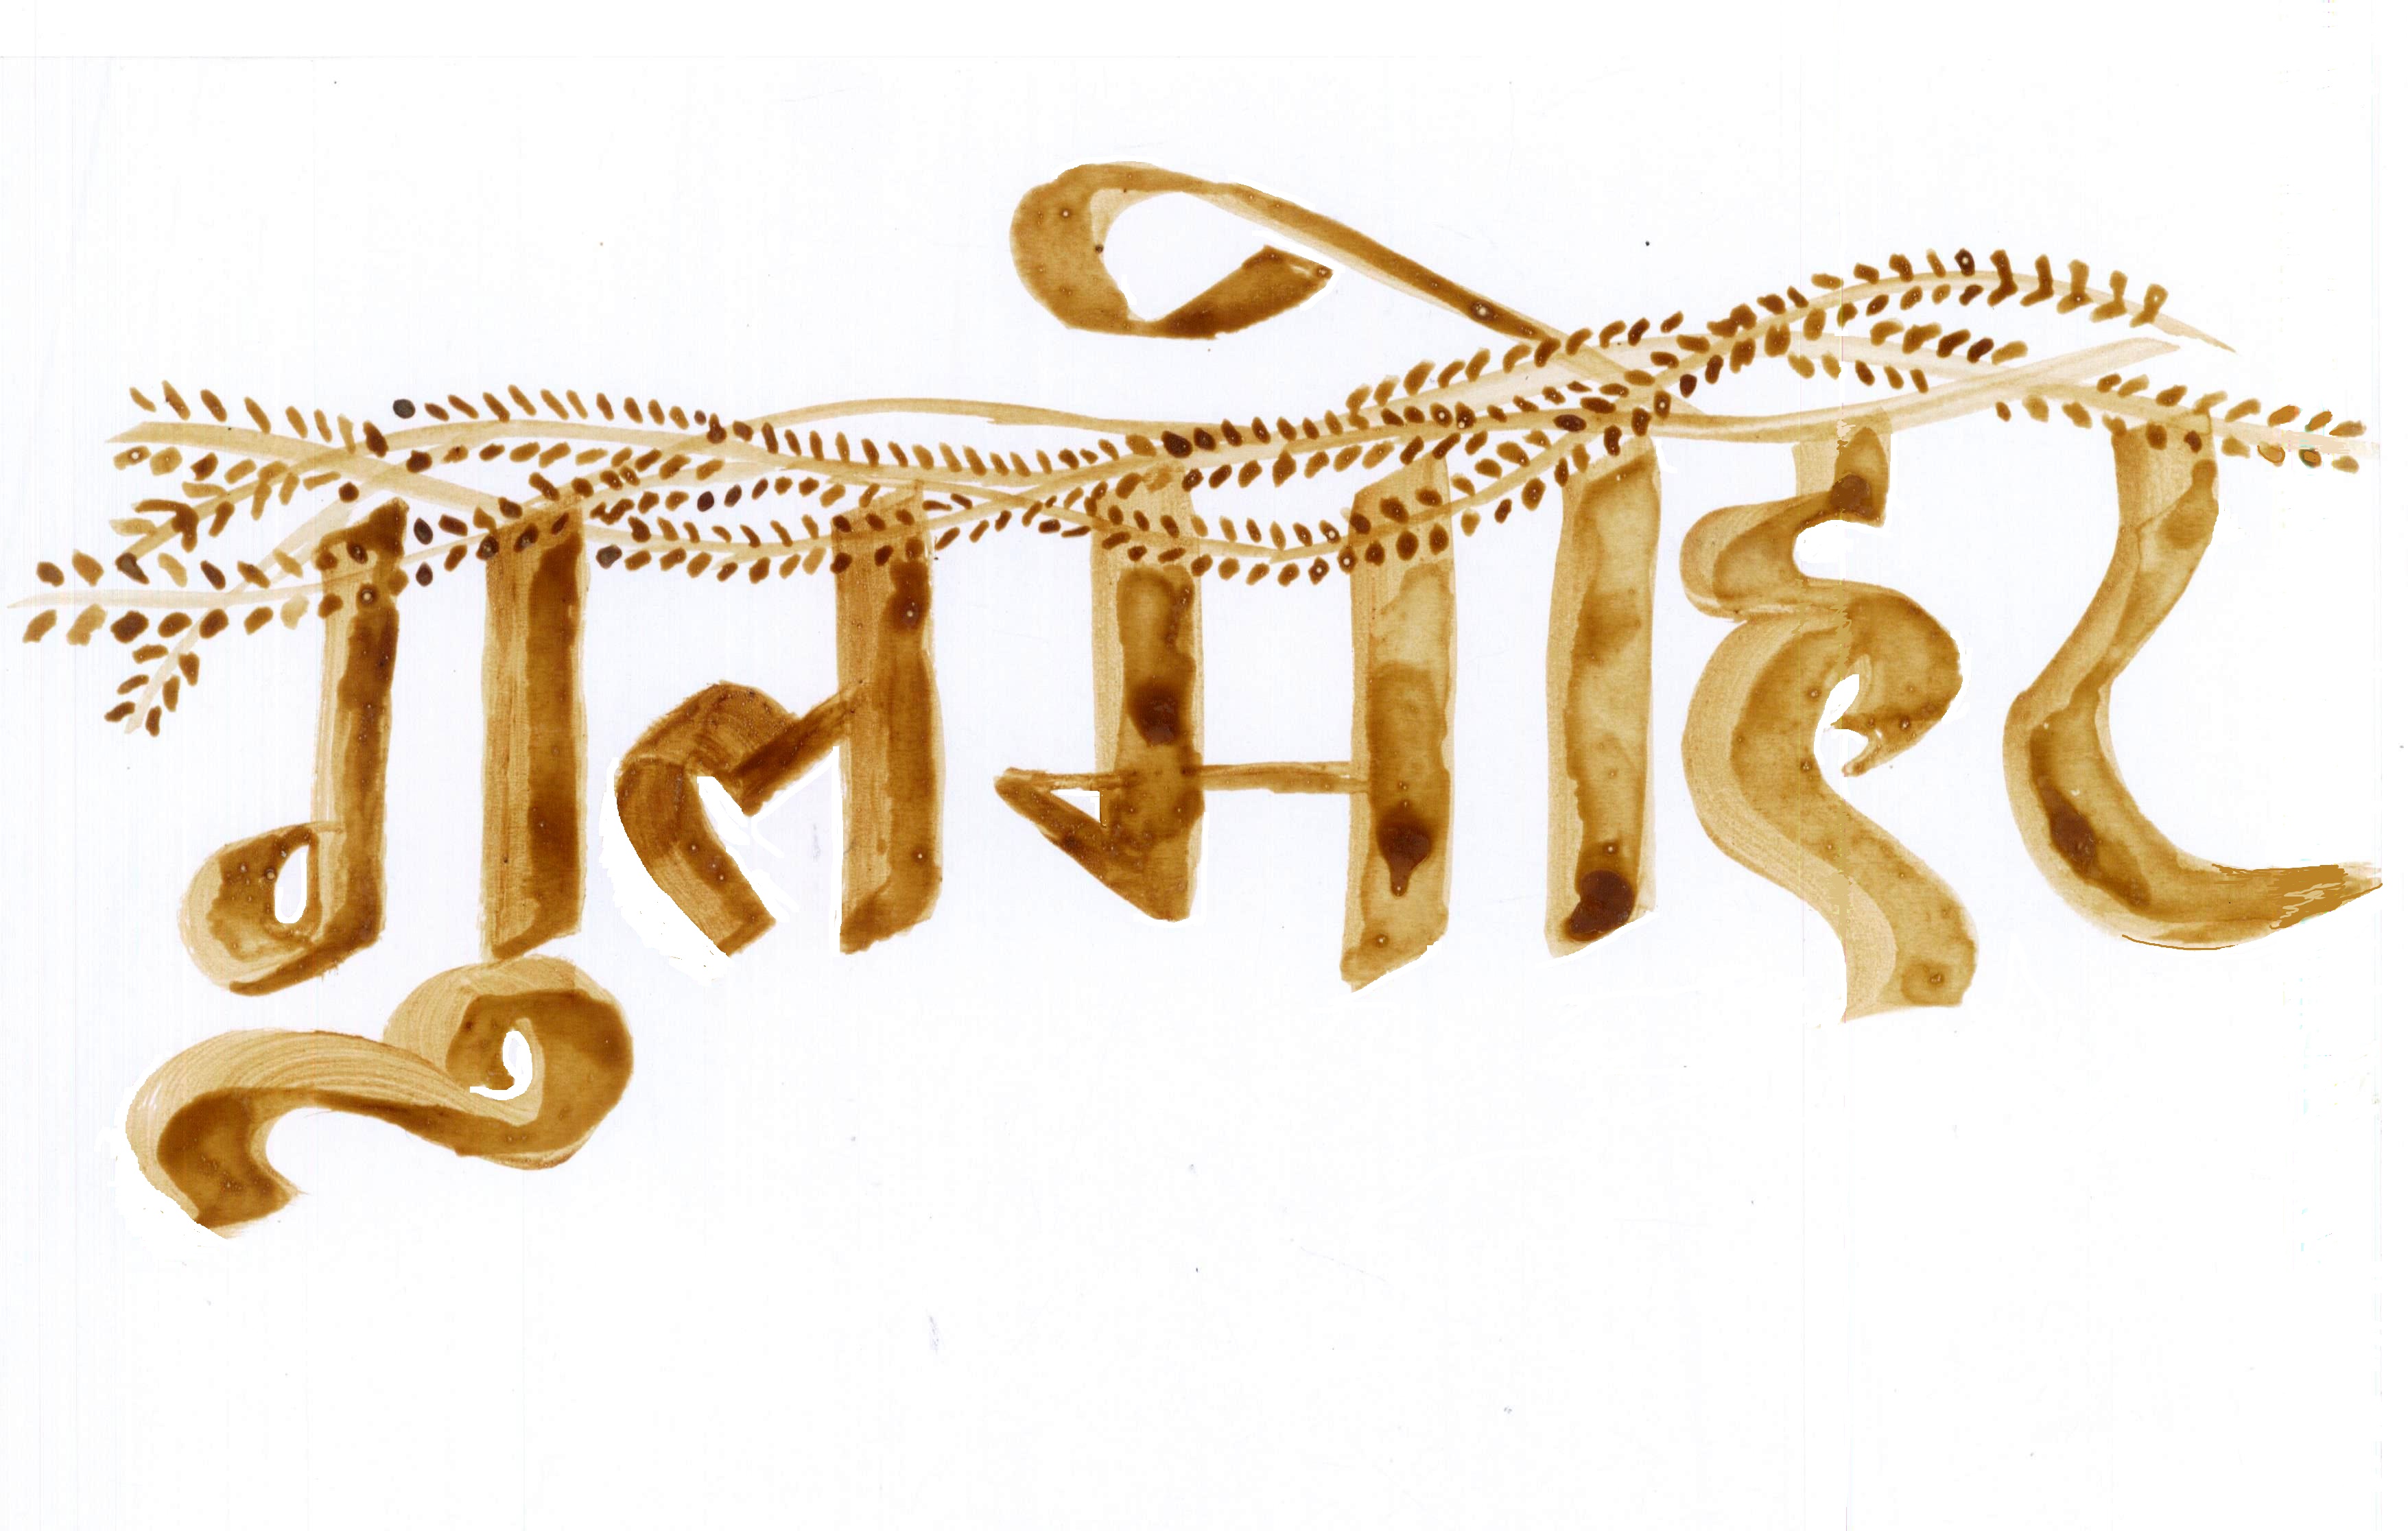 गुलमोहर